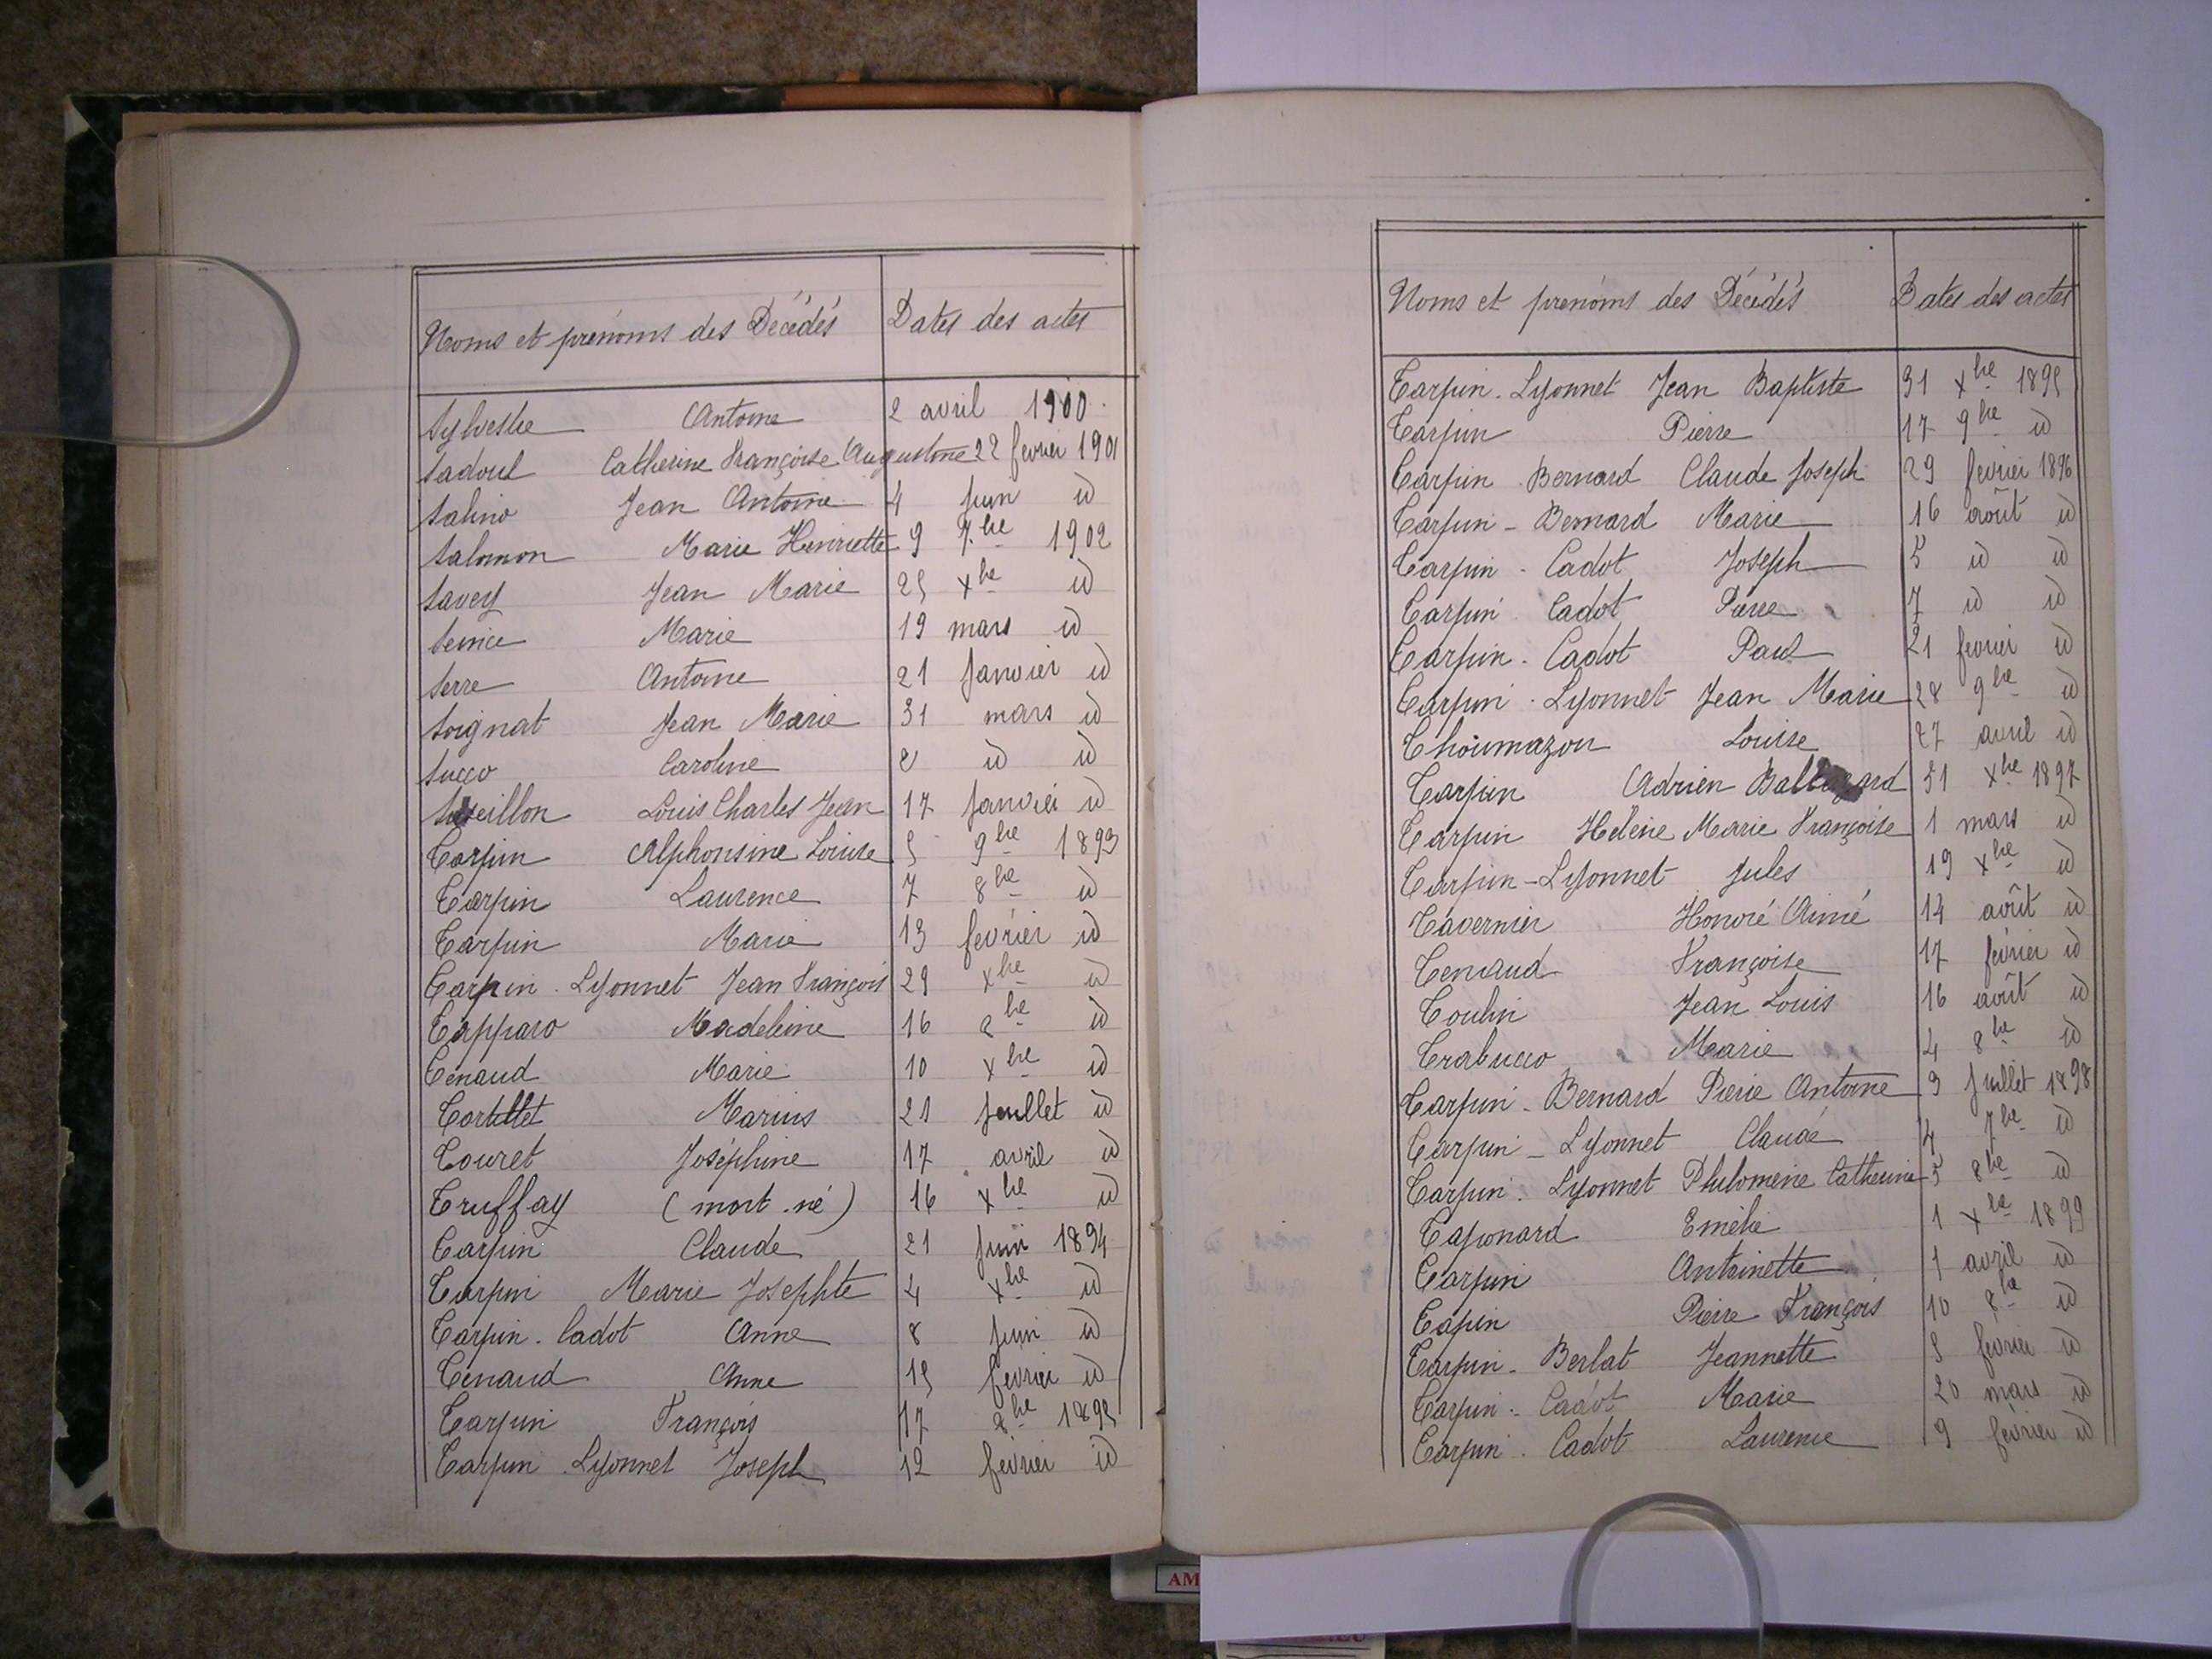 Noms et prénoms des Décédés Dates des actes
Sylvestre Antoine 2 avril 1900
Sadoul Catherine Françoise Augustine 22 fevrier 1901
Salino Jean Antoine 4 juin id
Salomon Marie Henriette 9 7bre 1902
Savey Jean Marie 25 Xbre id
Marie 19 mars id
Serre Antoine 21 janvier id
Soignat Jean Marie 31 mars id
Succo Caroline 2 id id
Louis Charles Jean 17 janvier id
Tarpin Alphonsine Louise 5 9bre 1893
Tarpin Laurence 7 8bre id
Tarpin Marie 13 fevrier id
Tarpin - Lyonnet Jean François 29 Xbre id
Tapparo Madeleine 16 8bre id
Tenaud Marie 10 Xbre id
Tortillet Marius 21 juillet id
Touret Joséphine 17 avril id
Truffay (mort-né) 16 Xbre id
Tarpin Claude 21 juin 1894
Tarpin Marie Josephte 4 Xbre id
Tarpin - Cadot Anne 8 juin id
Tenaud Anne 15 fevrier id
Tarpin François 17 8bre 1895
Tarpin - Lyonnet Joseph 12 fevrier id
Noms et prénoms des Décédés Dates des actes
Tarpin - Lyonnet Jean Baptiste 31 Xbre 1895
Tarpin Pierre 17 9bre id
Tarpin - Bernard Claude Joseph 29 fevrier 1896
Tarpin - Bernard Marie 16 août id
Tarpin - Cadot Joseph 5 id id
Tarpin Cadot Pierre 7 id id
Tarpin - Cadot Paul 21 fevrier id
Tarpin - Lyonnet Jean Marie 28 9bre id
Thoumazou Louise 27 avril id
Tarpin Adrien 31 Xbre 1897
Tarpin Hélène Marie Françoise 1 mars id
Tarpin - Lyonnet Jules 19 Xbre id
Tavernier Honoré Aimé 14 août id
Tenaud Françoise 17 février id
Toulin Jean Louis 16 août id
Trabucco Marie 4 8bre id
Tarpin - Bernard Pierre Antoine 9 juillet 1898
Tarpin - Lyonnet Claude 4 7bre id
Tarpin - Lyonnet Philomène Catherine 5 8bre id
Taponard Emélie 1 Xbre 1899
Tarpin Antoinette 1 avril id
Tapin Pierre François 10 8bre id
Tarpin - Berlat Jeannette 5 février id
Tarpin - Cadot Marie 20 mars id
Tarpin - Cadot Laurence 9 février id
AM